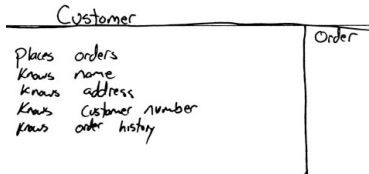 Customer
Places orders
Knows name
Knows address
Knows customer number
Knows order history
Order